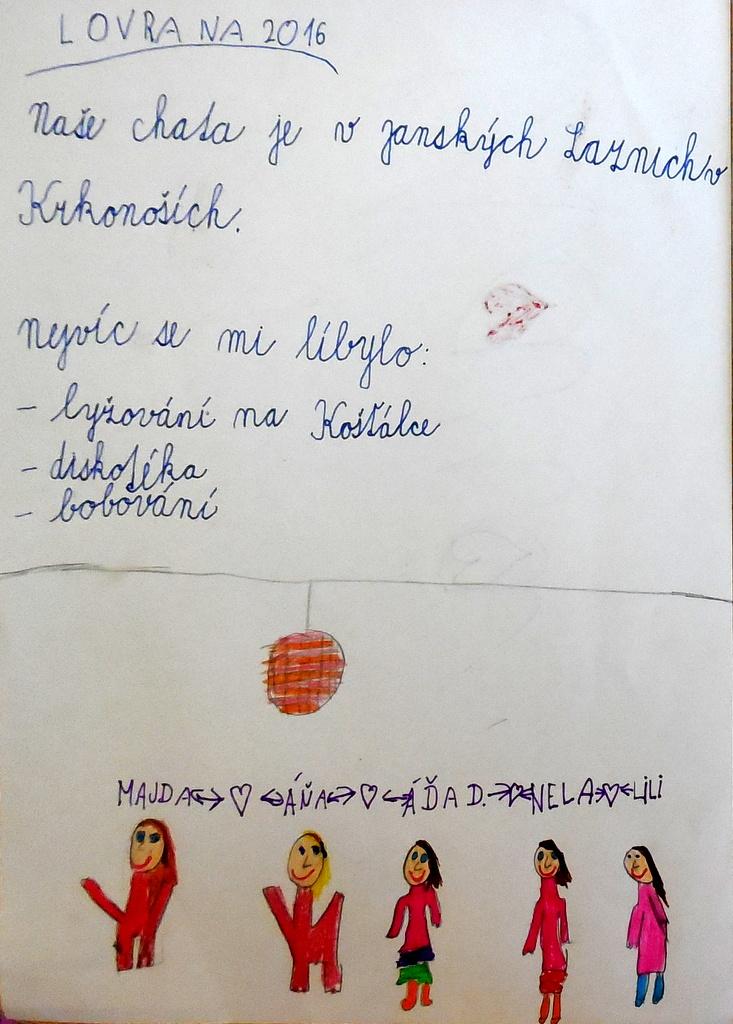 LOVRANA 2016
Naše chata je v janských Laznich v
Krkonoších.
nejvíc se mi líbylo:
- lyžování na Košťálce
- diskotéka
- bobování
MAJDA↔♡↔ÁŇA↔♡↔ÁĎA D.↔♡↔NELA↔♡↔LiLi